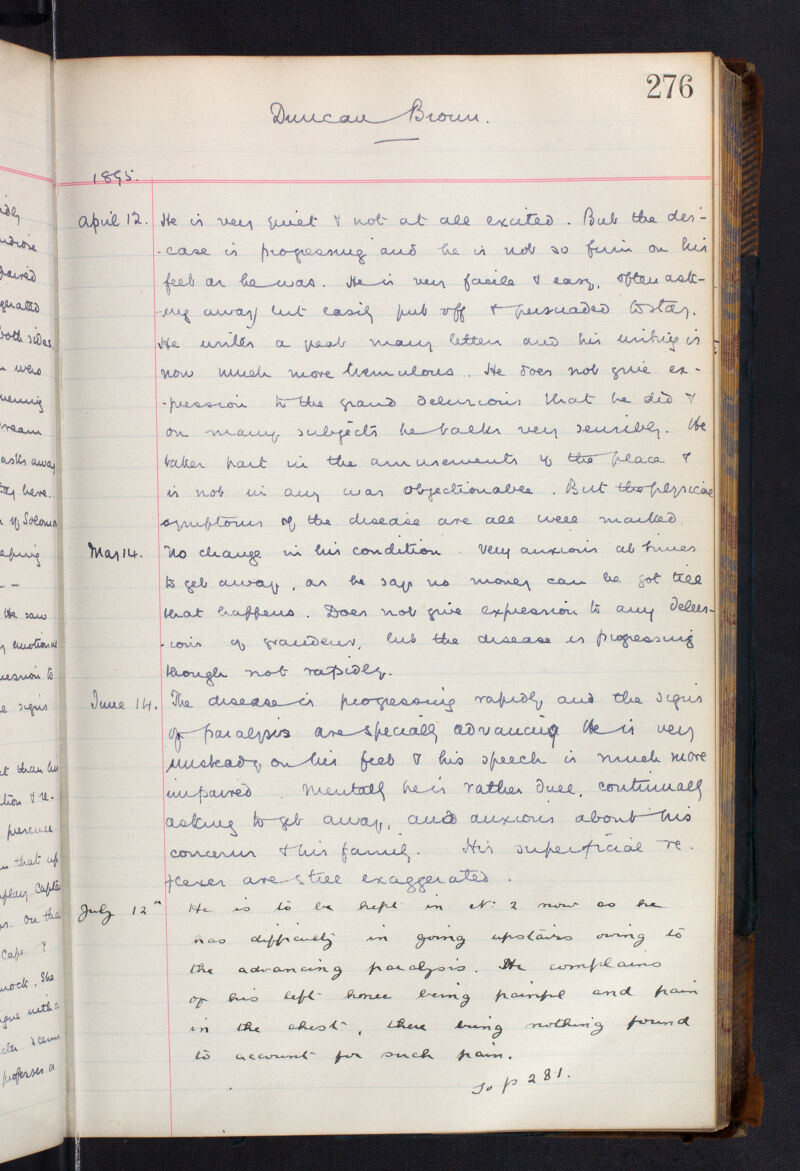 276
Duncan Brown.
1895.
April 12. He is very quiet & not at all excited. But the dis-
-ease is progressing and he is not so firm on his
feet as he was. He is very facile & easy, often ask-
-ing away but easily put off & persuaded to stay.
He writes a great many letters and his writing is
now much more tremulous. He does not give ex-
-pression to the grand delusions that he did &
on many subjects he talks very sensibly. He
takes part in the amusements of the place &
is not in any way objectionable. But the physical
symptoms of the disease are all well marked.
May 14. No change in his condition. Very anxious at times
to get away, as he says no money can be got till
that happens. Does not give expression to any delus-
-ions of grandeur, but the disease is progressing
though not rapidly.
June 14. The disease is progressing rapidly and the signs
of paralysis are specially advancing. He is very
unsteady on his feet & his speech is much more
impaired. Mentally he is rather dull, continually
asking to get away, and anxious about his
concerns & his family. His superficial re-
flexes are still exaggerated.
July 12th He is to be kept in No: 2 now as he
has difficulty in going upstairs owing to
the advancing paralysis. He complains
of his left knee being painful and pain
in the chest, there being nothing found
to account for such pain.
To p 281.
both sides
who
asks away
He saw
emotional
signs
that up
Cape &
She